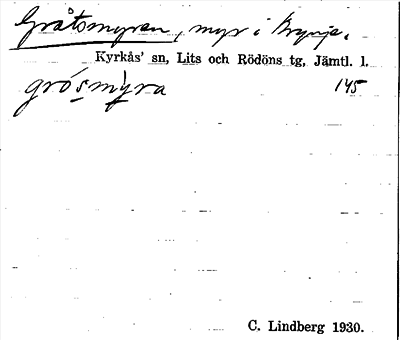 Gråtsmyran, myr i Brynje.
Kyrkås' sn, Lits och Rödöns tg, Jämtl. l.
grósmýra 145
C. Lindberg 1930.